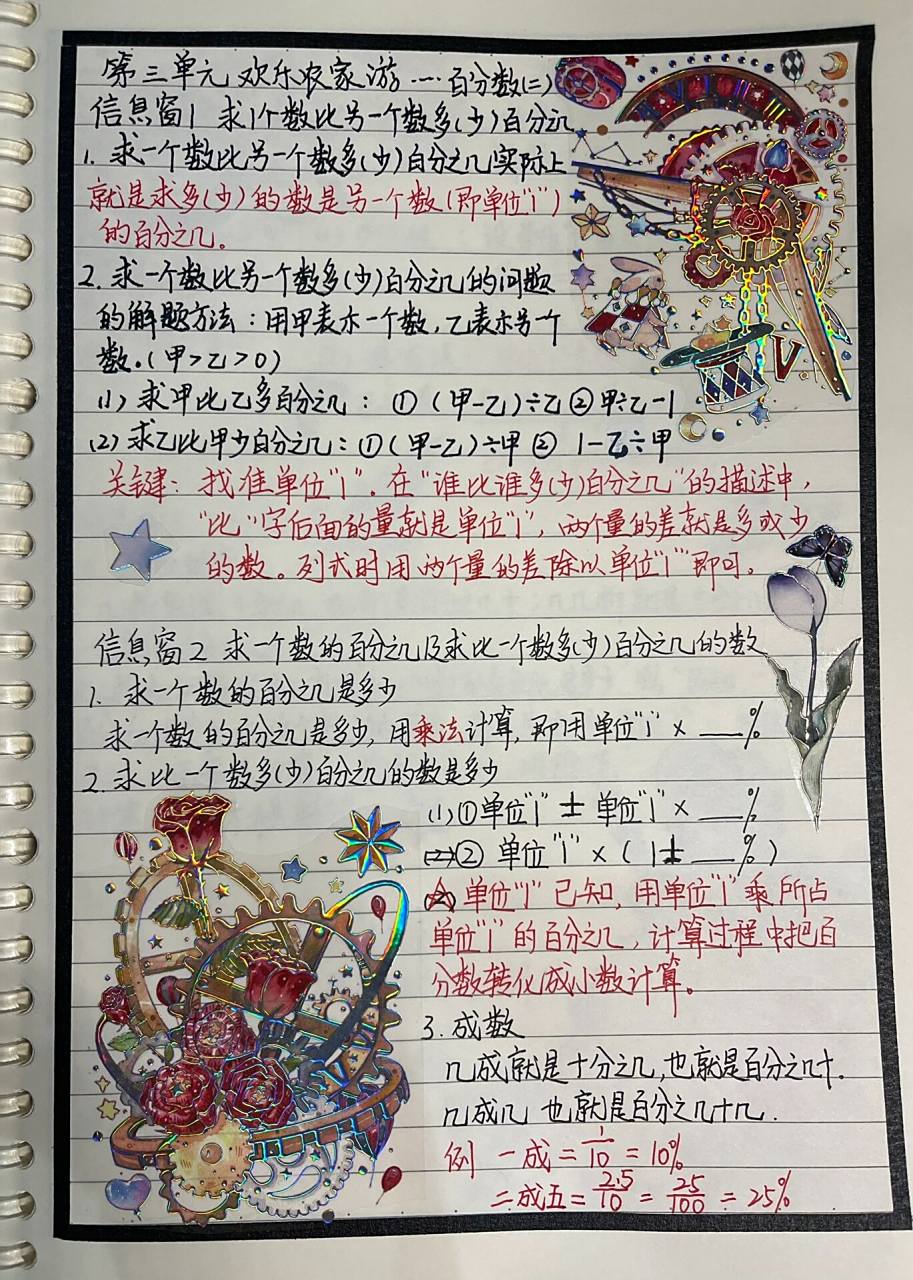 第三单元 欢乐农家游……百分数(二)
信息窗1 求1个数比另一个数多(少)百分之几
1. 求一个数比另一个数多(少)百分之几实际上
就是求多(少)的数是另一个数(即单位"1")
的百分之几。
2. 求一个数比另一个数多(少)百分之几的问题
的解题方法：用甲表示一个数，乙表示另一个
数.(甲>乙>0)
(1) 求甲比乙多百分之几：①(甲-乙)÷乙 ②甲÷乙-1
(2) 求乙比甲少百分之几：①(甲-乙)÷甲 ② 1-乙÷甲
关键：找准单位"1". 在"谁比谁多(少)百分之几"的描述中，
"比"字后面的量就是单位"1"，两个量的差就是多或少
的数。列式时用两个量的差除以单位"1"即可.
信息窗2 求一个数的百分之几及求比一个数多(少)百分之几的数
1. 求一个数的百分之几是多少
求一个数的百分之几是多少，用乘法计算，即用单位"1" × __%
2. 求比一个数多(少)百分之几的数是多少
(1)①单位"1" ± 单位"1" × __%
② 单位"1" × (1± __%)
单位"1"已知，用单位"1"乘所占
单位"1"的百分之几，计算过程中把百
分数转化成小数计算。
3. 成数
几成就是十分之几，也就是百分之几十.
几成几 也就是百分之几十几.
例 一成=1/10=10%
二成五=2.5/10=25/100=25%
V